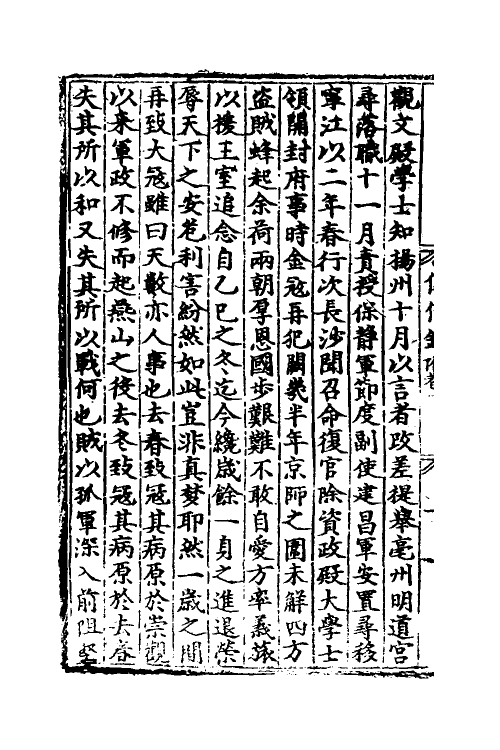 觀文殿學士知揚州十月以言者改差提舉亳州明道宮
尋落職十一月責授保静軍節度副使建昌軍安置尋移
寧江以二年春行次長沙聞召命復官除資政殿大學士
領開封府事時金冦再犯闕幾半年京師之圍未解四方
盗賊蜂起余荷兩朝厚恩國步艱難不敢自愛方率義旅
以援王室追念自乙巳之冬迄今纔歲餘一身之進退榮
辱天下之安危利害紛然如此豈非真夢耶然一歲之間
再致大冦雖曰天數亦人事也去春致冦其病原於崇觀
以来軍政不修而起燕山之後去冬致冦其病原於去春
失其所以和又失其所以戰何也賊以孤軍深入前阻堅